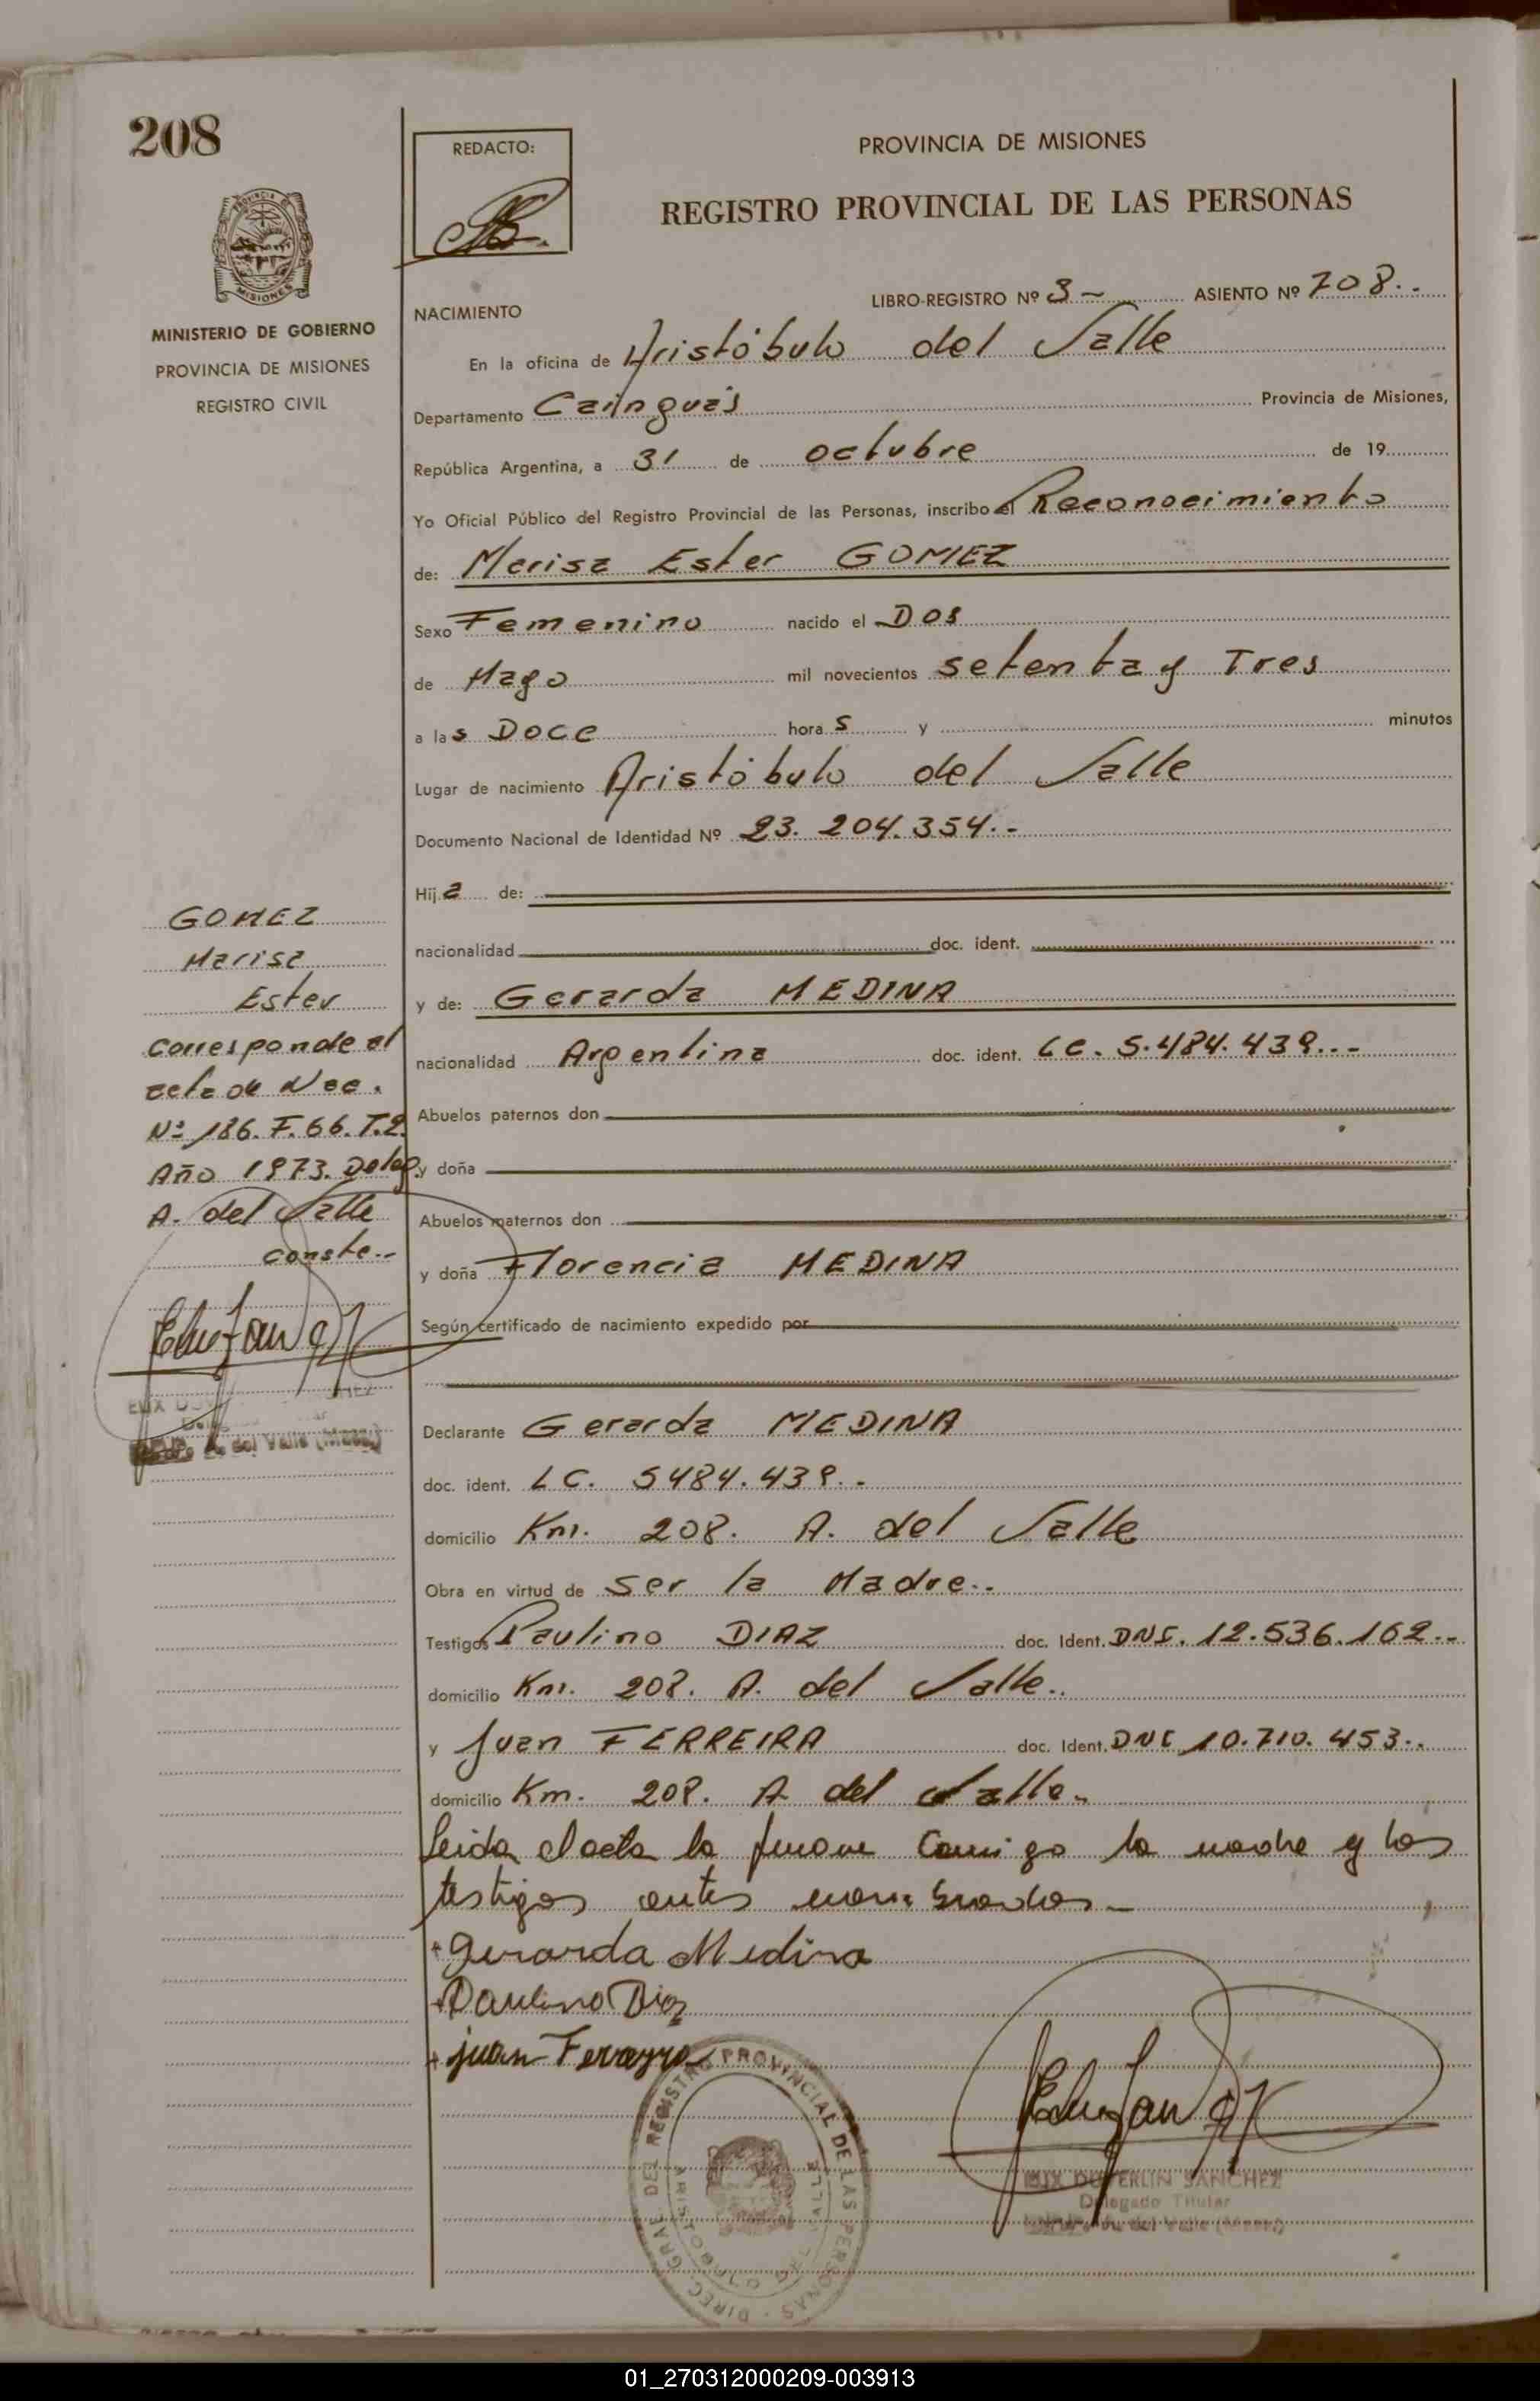 208
REDACTO:
PROVINCIA DE MISIONES
REGISTRO PROVINCIAL DE LAS PERSONAS
PROVINCIA DE
MISIONES
MINISTERIO DE GOBIERNO
PROVINCIA DE MISIONES
REGISTRO CIVIL
NACIMIENTO
LIBRO-REGISTRO Nº 3- ASIENTO Nº 708.-
En la oficina de Aristóbulo del Valle
Departamento Cainguás Provincia de Misiones,
República Argentina, a 31 de octubre de 19
Yo Oficial Público del Registro Provincial de las Personas, inscribo el Reconocimiento
de: Marisa Ester GOMEZ
Sexo Femenino nacido el Dos
de Mayo mil novecientos setenta y Tres
a las Doce horas y minutos
Lugar de nacimiento Aristóbulo del Valle
Documento Nacional de Identidad Nº 23.204.354.-
Hija de:
nacionalidad doc. ident.
y de: Gerarda MEDINA
nacionalidad Argentina doc. ident. LC. 5.484.439.-
Abuelos paternos don
y doña
Abuelos maternos don
y doña Florencia MEDINA
Según certificado de nacimiento expedido por
Declarante Gerarda MEDINA
doc. ident. LC. 5484.439.-
domicilio Km. 208. A. del Valle
Obra en virtud de ser la Madre.-
Testigos Paulino DIAZ doc. Ident. DNI. 12.536.162.-
domicilio Km. 208. A. del Valle.
y Juan FERREIRA doc. Ident. DNI 10.710.453.-
domicilio Km. 208. A del Valle.
Leida el acta la firman Conmigo la madre y los
testigos antes nombrados.-
+ Gerarda Medina
+ Paulino Diaz
+ juan Ferreyra
GOMEZ
Marisa
Ester
Corresponde al
acta de Nac.
Nº 186. F. 66. T.2.
Año 1973. Deleg.
A. del Valle
conste.-
del Valle (Mnes.)
DIREC. GRAL. DEL REGISTRO PROVINCIAL DE LAS PERSONAS
ARISTOBULO DEL VALLE
SANCHEZ
Delegado Titular
del Valle (Mnes.)
01_270312000209-003913